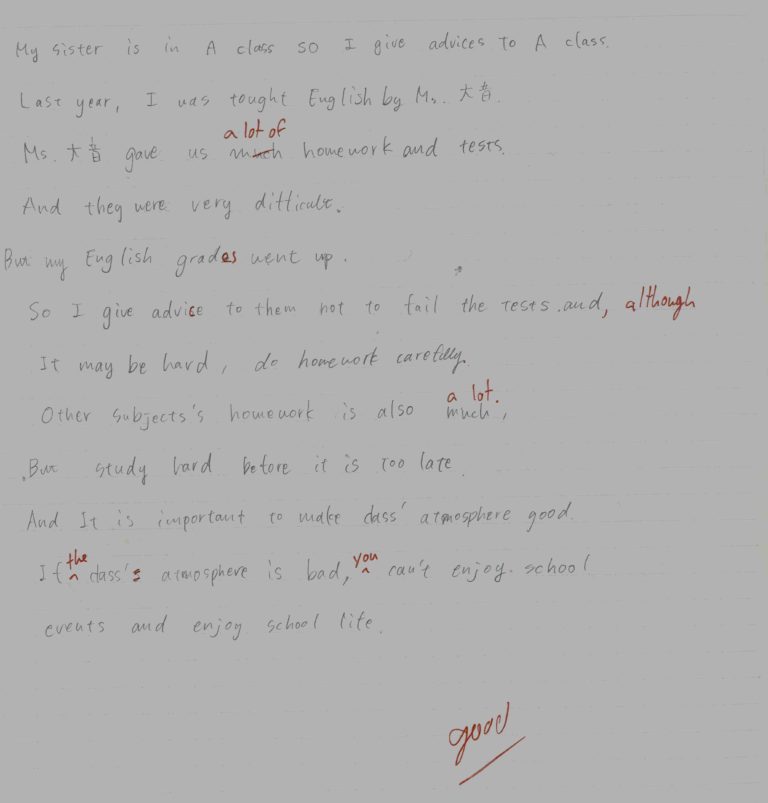 My sister is in A class so I give advices to A class.
Last year, I was tought English by Ms. 大音.
a lot of
Ms. 大音 gave us much homework and tests.
And they were very difficult.
But my English grades went up.
So I give advice to them not to fail the tests and, although
It may be hard, do homework carefully.
a lot.
Other subjects's homework is also much,
But study hard before it is too late
And It is important to make class' atmosphere good.
the you
If class's atmosphere is bad, can't enjoy school
events and enjoy school life.
good